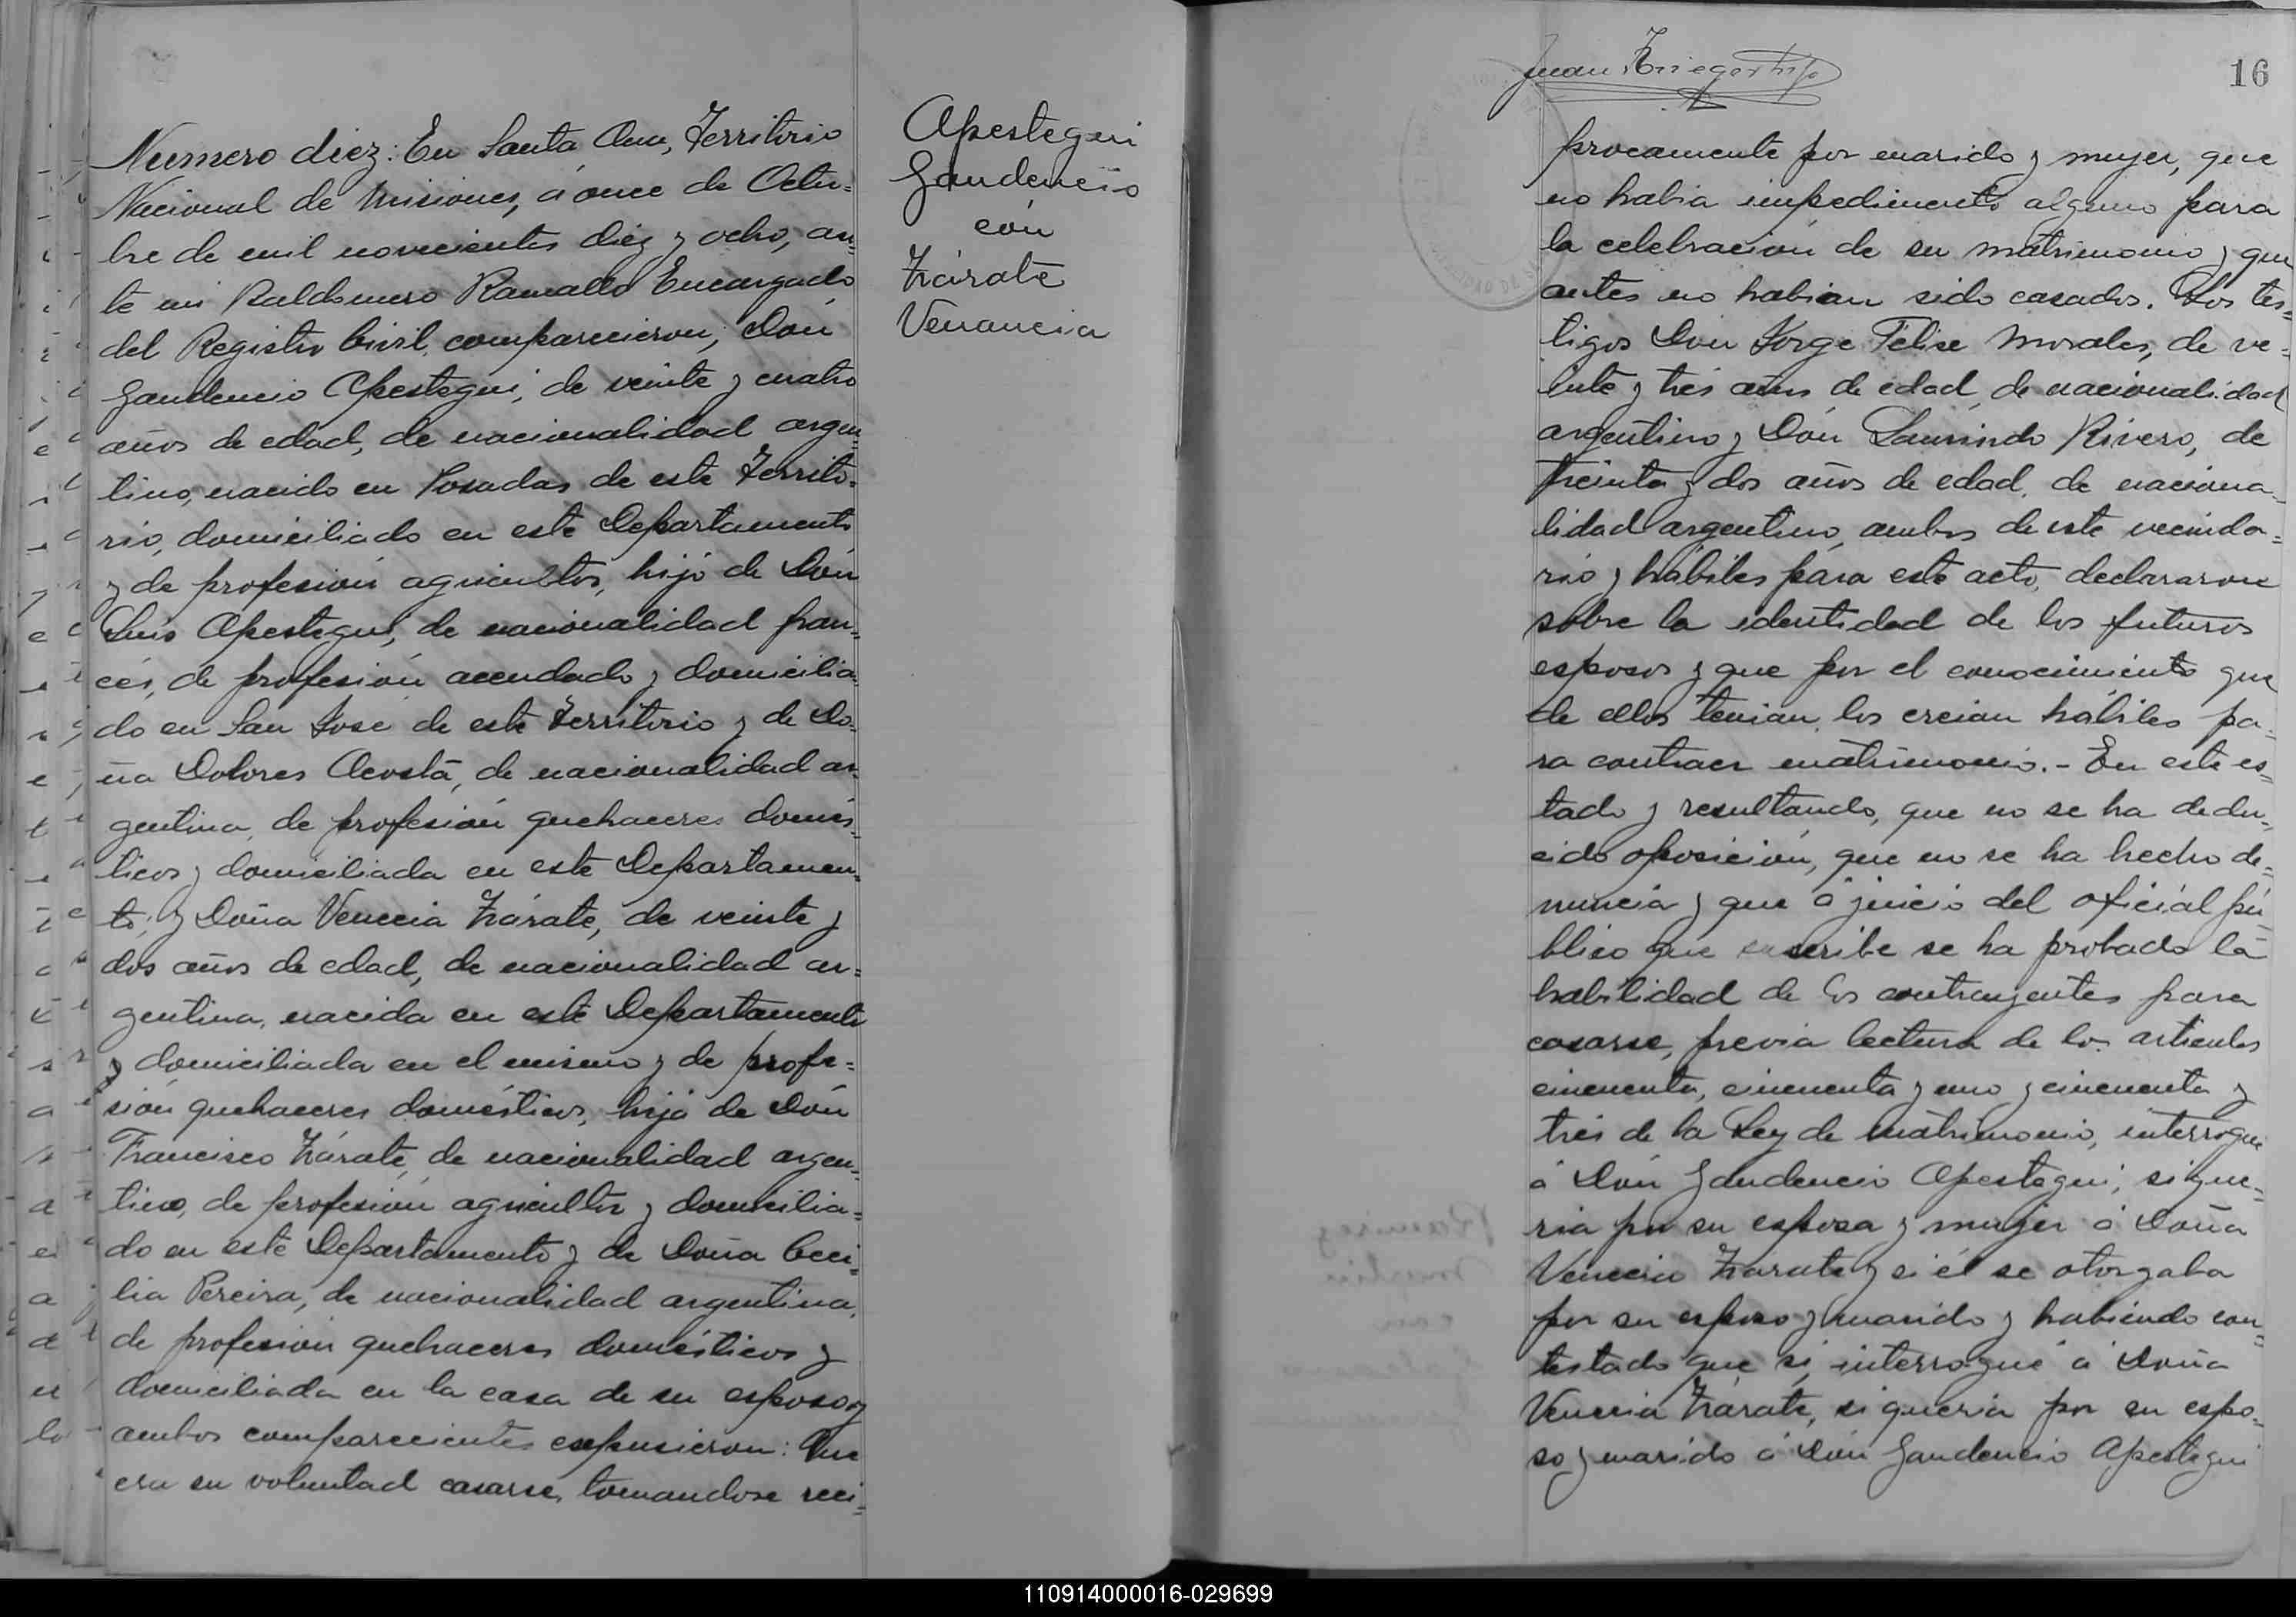 Numero diez: En Santa Ana, Territorio
Nacional de Misiones, á once de Octu=
bre de mil novecientos diez y ocho, an=
te mi Baldomero Ramallo Encargado
del Registro Civil, comparecieron; Don
Gaudencio Apestegui, de veinte y cuatro
años de edad, de nacionalidad argen=
tino, nacido en Posadas de este Territo=
rio, domiciliado en este Departamento
y de profesión agricultor, hijo de Don
Luis Apestegui, de nacionalidad fran=
cés, de profesión acendado y domicilia=
do en San José de este Territorio y de Do=
ña Dolores Acosta, de nacionalidad ar=
gentina, de profesión quehaceres domés=
ticos y domiciliada en este Departamen=
to; y Doña Venecia Zárate, de veinte y
dos años de edad, de nacionalidad ar=
gentina, nacida en este Departamento
y domiciliada en el mismo y de profe=
sión quehaceres domésticos, hija de Don
Francisco Zárate, de nacionalidad argen=
tino, de profesión agricultor y domicilia=
do en este Departamento y de Doña Ceci=
lia Pereira, de nacionalidad argentina,
de profesión quehaceres domésticos y
domiciliada en la casa de su esposo y
ambos comparecientes expusieron: Que
era su voluntad casarse, tomandose reci=
Apestegui
Gaudencio
con
Zárate
Venancia
Juan Krieger hijo
16
procamente por marido y mujer, que
no habia impedimento alguno para
la celebración de su matrimonio y que
antes no habian sido casados. Los tes=
tigos Don Jorge Felise Morales, de ve=
inte y tres años de edad, de nacionalidad
argentino y Don Laurindo Rivero, de
treinta y dos años de edad, de naciona=
lidad argentino, ambos de este vecinda=
rio y hábiles para este acto, declararon
sobre la identidad de los futuros
esposos y que por el conocimiento que
de ellos tenian, los creian hábiles pa=
ra contraer matrimonio.- En este es=
tado y resultando, que no se ha dedu=
cido oposición, que no se ha hecho de=
nuncia y que á juicio del oficial pú=
blico que suscribe se ha probado la
habilidad de los contrayentes para
casarse, previa lectura de los articulos
cincuenta, cincuenta y uno y cincuenta y
tres de la Ley de Matrimonio, interrogue
á Don Gaudencio Apestegui, si que=
ria por su esposa y mujer á Doña
Venecia Zárate y si él se otorgaba
por su esposo y marido y habiendo con=
testado que si, interrogué á Doña
Venecia Zárate, si queria por su espo=
so y marido á Don Gaudencio Apestegui
110914000016-029699